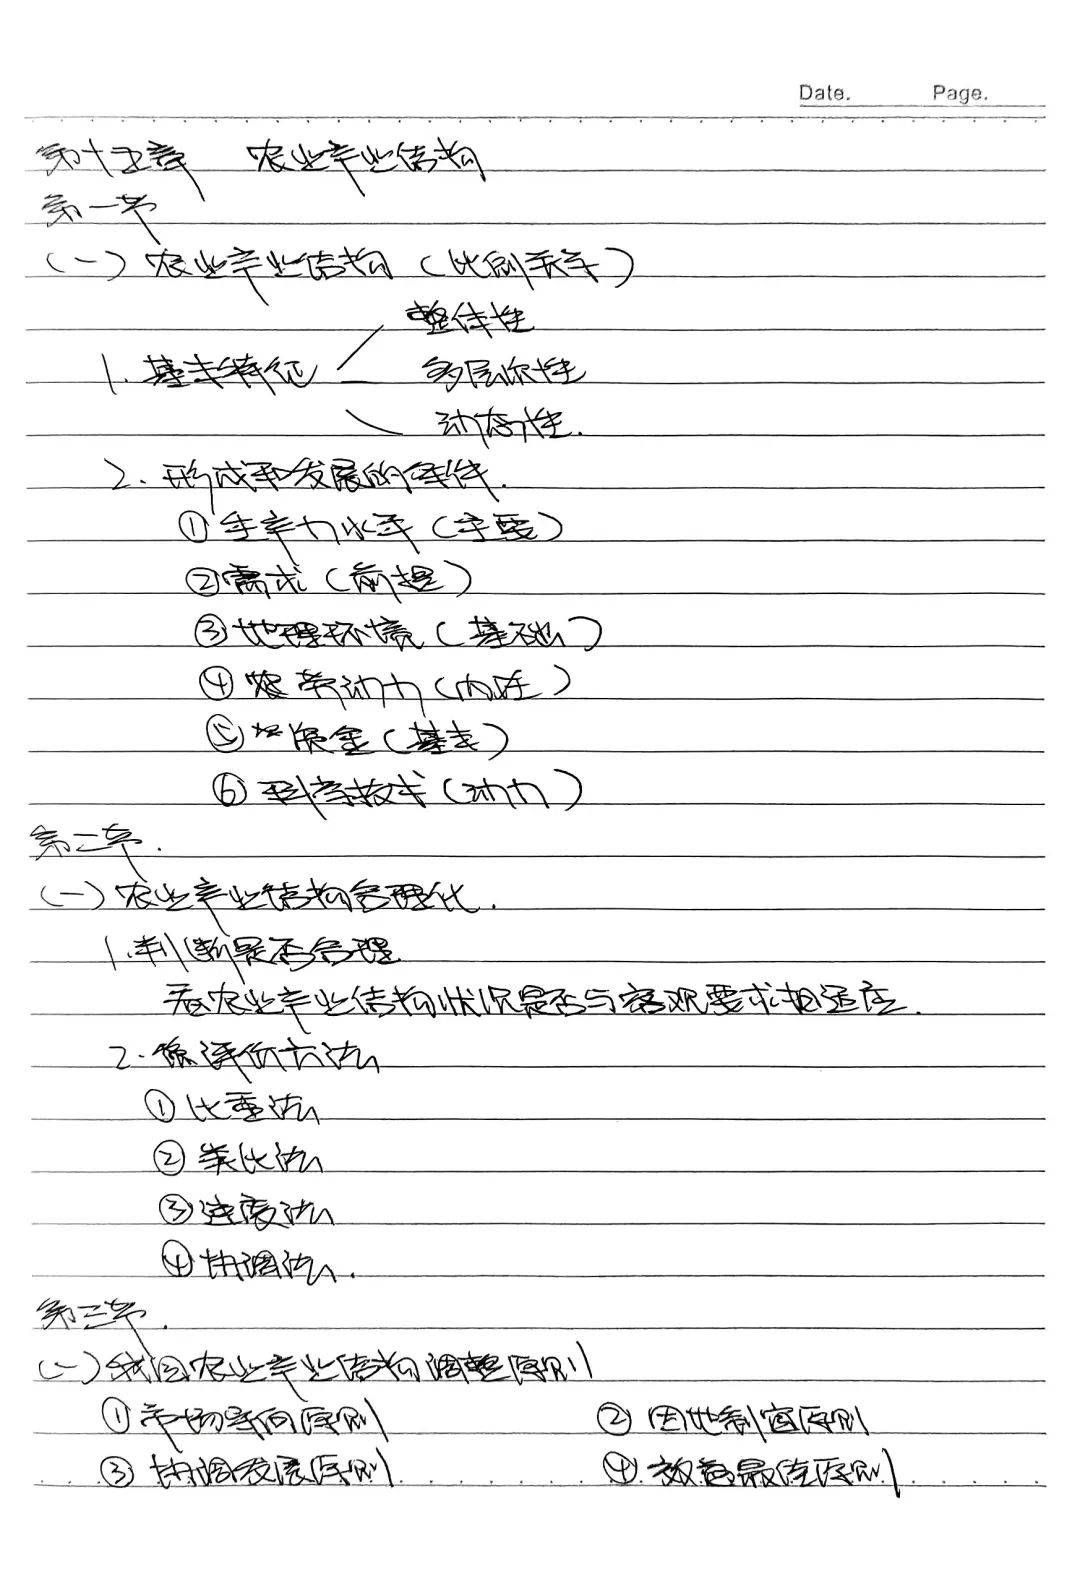 Date. Page.
第十五章 农业产业结构
第一节
(一) 农业产业结构 (比例关系)
整体性
1. 基本特征 多层次性
动态性.
2. 形成和发展的条件.
① 生产力水平 (主要)
② 需求 (前提)
③ 地理环境 (基础)
④ 农劳动力 (内在)
⑤ 资金 (基本)
⑥ 科学技术 (动力)
第二节.
(一) 农业产业结构合理化.
1. 判断是否合理
看农业产业结构状况是否与客观要求相适应.
2. 评价方法
① 比重法
② 类比法
③ 速度法
④ 协调法.
第三节.
(一) 我国农业产业结构调整原则
① 市场导向原则 ② 因地制宜原则
③ 协调发展原则 ④ 效益最佳原则